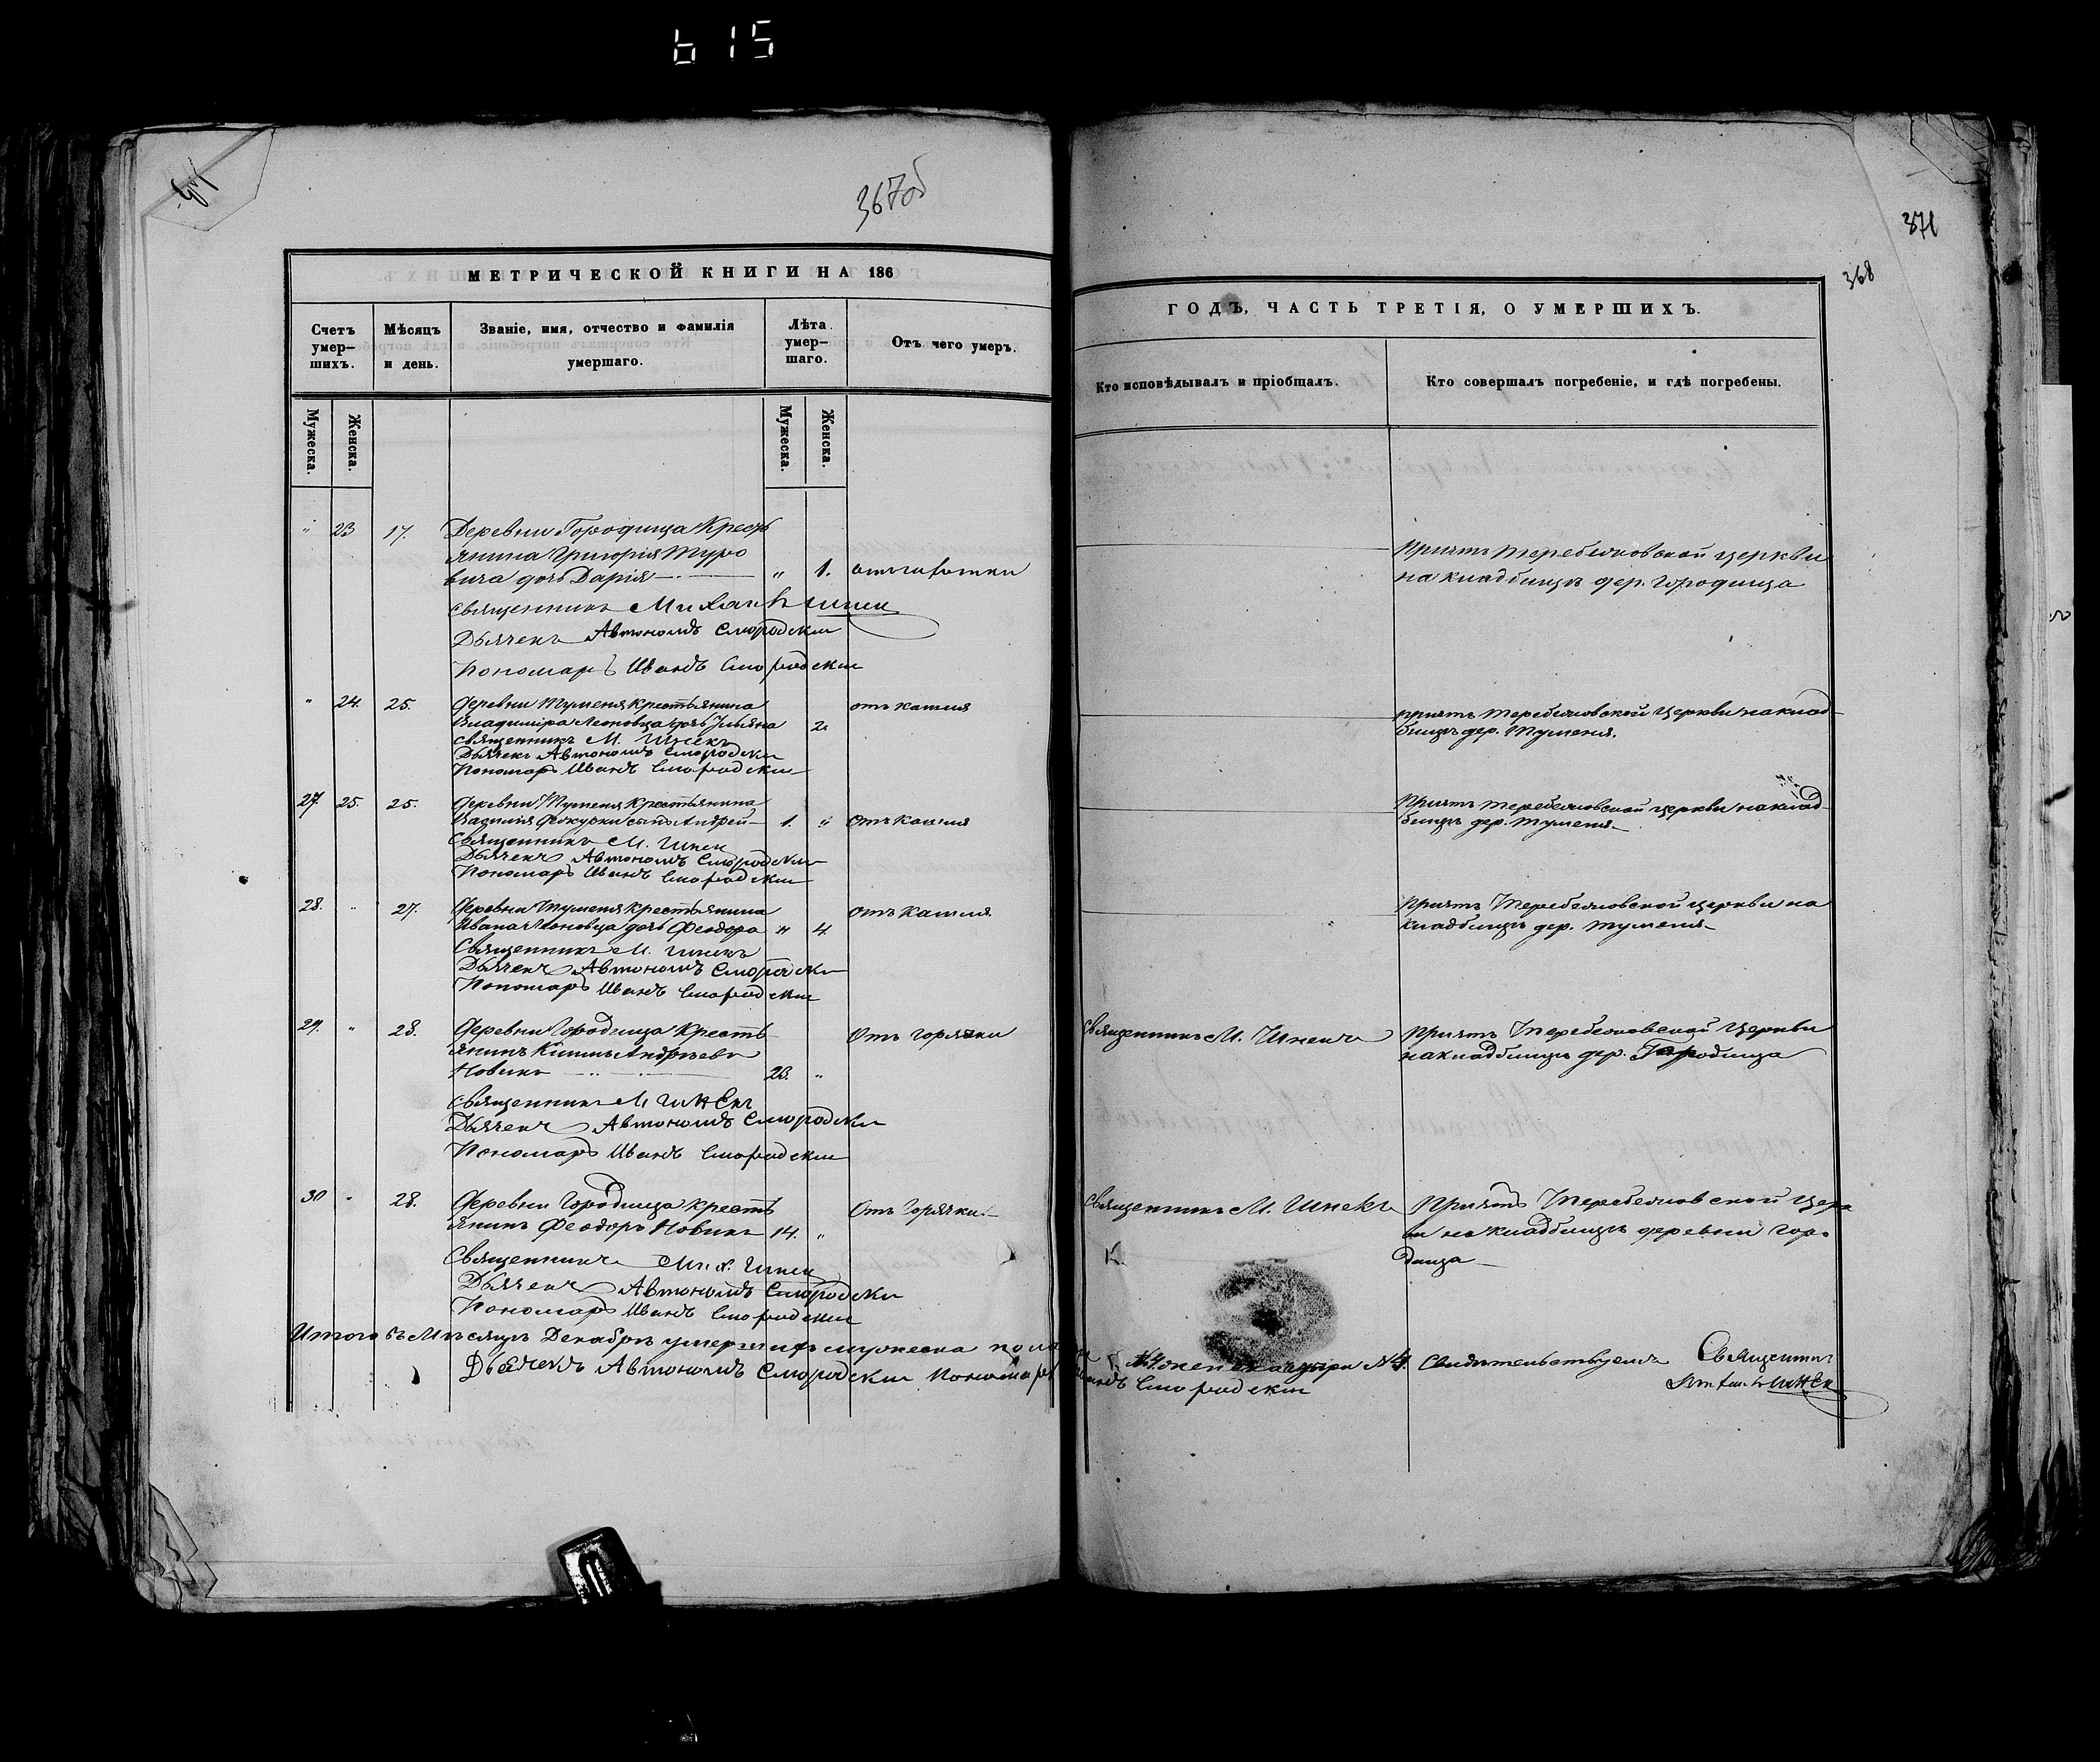 615
367об
371
368
МЕТРИЧЕСКОЙ КНИГИ НА 186
Счетъ умер-шихъ.
Мѣсяцъ и день.
Званіе, имя, отчество и фамилія умершаго.
Лѣта умер-шаго.
Отъ чего умеръ.
Мужеска.
Женска.
Мужеска.
Женска.
ГОДЪ, ЧАСТЬ ТРЕТІЯ, О УМЕРШИХЪ.
Кто исповѣдывалъ и пріобщалъ.
Кто совершалъ погребеніе, и гдѣ погребены.
" 23 17. Деревни Городища Кресть
янина Григорія Туро
вича дочь Дарія — " 1.
Причтъ Теребежовской церкви
на кладбищѣ дер. Городища
Священникъ Михаилъ Шпек
Дьячекъ Автономъ Смородски
Пономарь Иванъ Смородски
" 24. 25. Деревни Туменя Крестьянина
Владиміра Леоновца дочь Ульяна 2 отъ кашля
Священникъ М. Шпекъ
Дьячекъ Автономъ Смородски
Пономарь Иванъ Смородски
причтъ Теребежовской Церкви на клад-
бищѣ дер. Туменя.
27. 25. 25. Деревни Туменя Крестьянина
Василія сынъ Андрей — 1. " Отъ кашля
Священникъ М. Шпек
Дьячекъ Автономъ Смородски
Пономарь Иванъ Смородски
Причтъ Теребежовской церкви на клад-
бищѣ дер. Туменя —
28. " 27. Деревни Туменя Крестьянина
Ивана Леоновца дочь Феодора " 4 отъ кашля.
Священникъ М. Шпекъ
Дьячекъ Автономъ Смородски
Пономарь Иванъ Смородски
Причтъ Теребежовской церкви на
кладбищѣ дер. Туменя —
29. " 28. Деревни Городища Кресть
янинъ Андреевъ
Новикъ — 23. " Отъ горячки
Священникъ М. Шпекъ
Дьячекъ Автономъ Смородски
Пономарь Иванъ Смородски
Священникъ М. Шпекъ
Причтъ Теребежовской Церкви
на кладбищѣ дер. Городища
30 " 28. Деревни Городища Кресть
янинъ Феодоръ Новикъ 14. " Отъ Горячки —
Священникъ Мих. Шпек
Дьячекъ Автономъ Смородски
Пономарь Иванъ Смородски
Священникъ М. Шпекъ
Причтъ Теребежовской Церк
ви на кладбищѣ деревни Горо
дища —
Итого въ Мѣсяцѣ Декабрѣ умершихъ мужеска пола
Свидѣтельствуемъ Священникъ
Михаилъ Шпек
Дьячекъ Автономъ Смородски Пономарь Иванъ Смородски